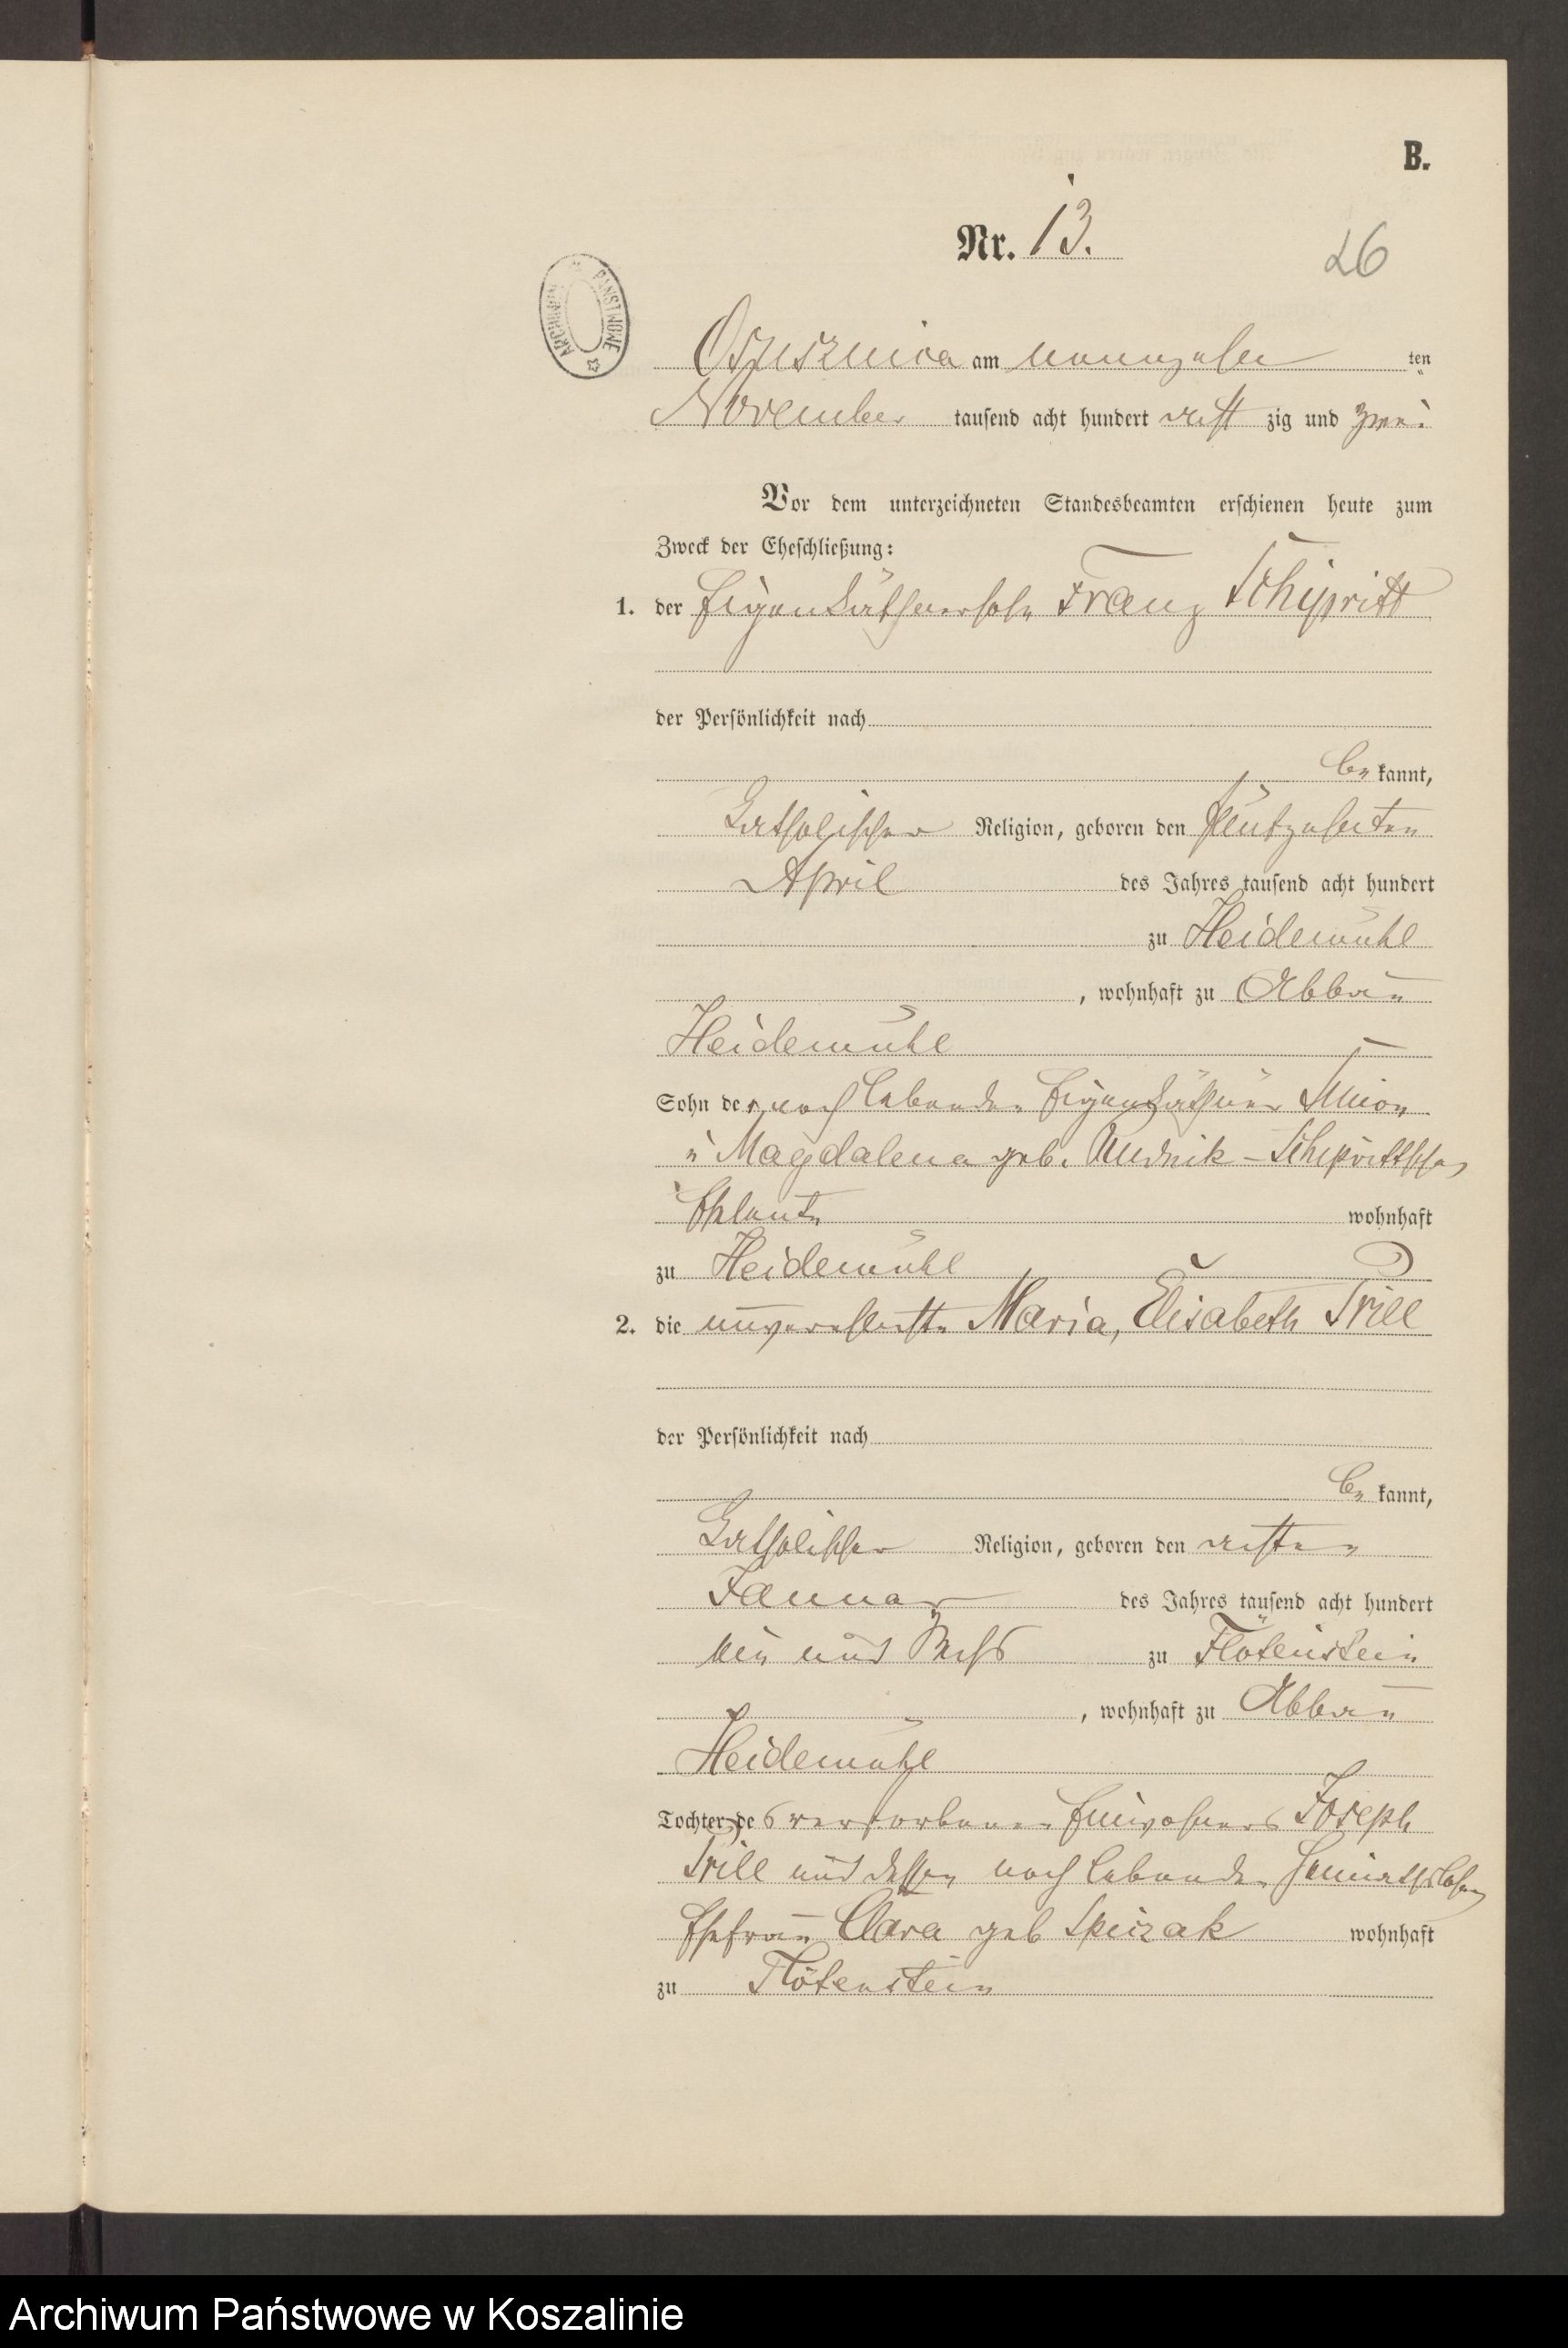 B.
Nr. 13.
26
ARCHIWUM PAŃSTWOWE
Osusznica am neunzehn ten
November tausend acht hundert acht zig und zwei
Vor dem unterzeichneten Standesbeamten erschienen heute zum
Zweck der Eheschließung:
1. der Eigenkäthnersohn Franz Schipritt
der Persönlichkeit nach
be kannt,
katholischer Religion, geboren den fünfzehnten
April des Jahres tausend acht hundert
zu Heidemühl
, wohnhaft zu Abbau
Heidemühl
Sohn der noch lebenden Eigenkäthner Simon
u Magdalena geb. Rudnik - Schiprittschen
Eheleute wohnhaft
zu Heidemühl
2. die unverehelichte Maria, Elisabeth Prill
der Persönlichkeit nach
be kannt,
katholischer Religion, geboren den achten
Januar des Jahres tausend acht hundert
und sechs zu Flötenstein
, wohnhaft zu Abbau
Heidemühl
Tochter des verstorbenen Einwohners Joseph
Prill und dessen noch lebenden
Ehefrau Clara geb Spiczak wohnhaft
zu Flötenstein
Archiwum Państwowe w Koszalinie